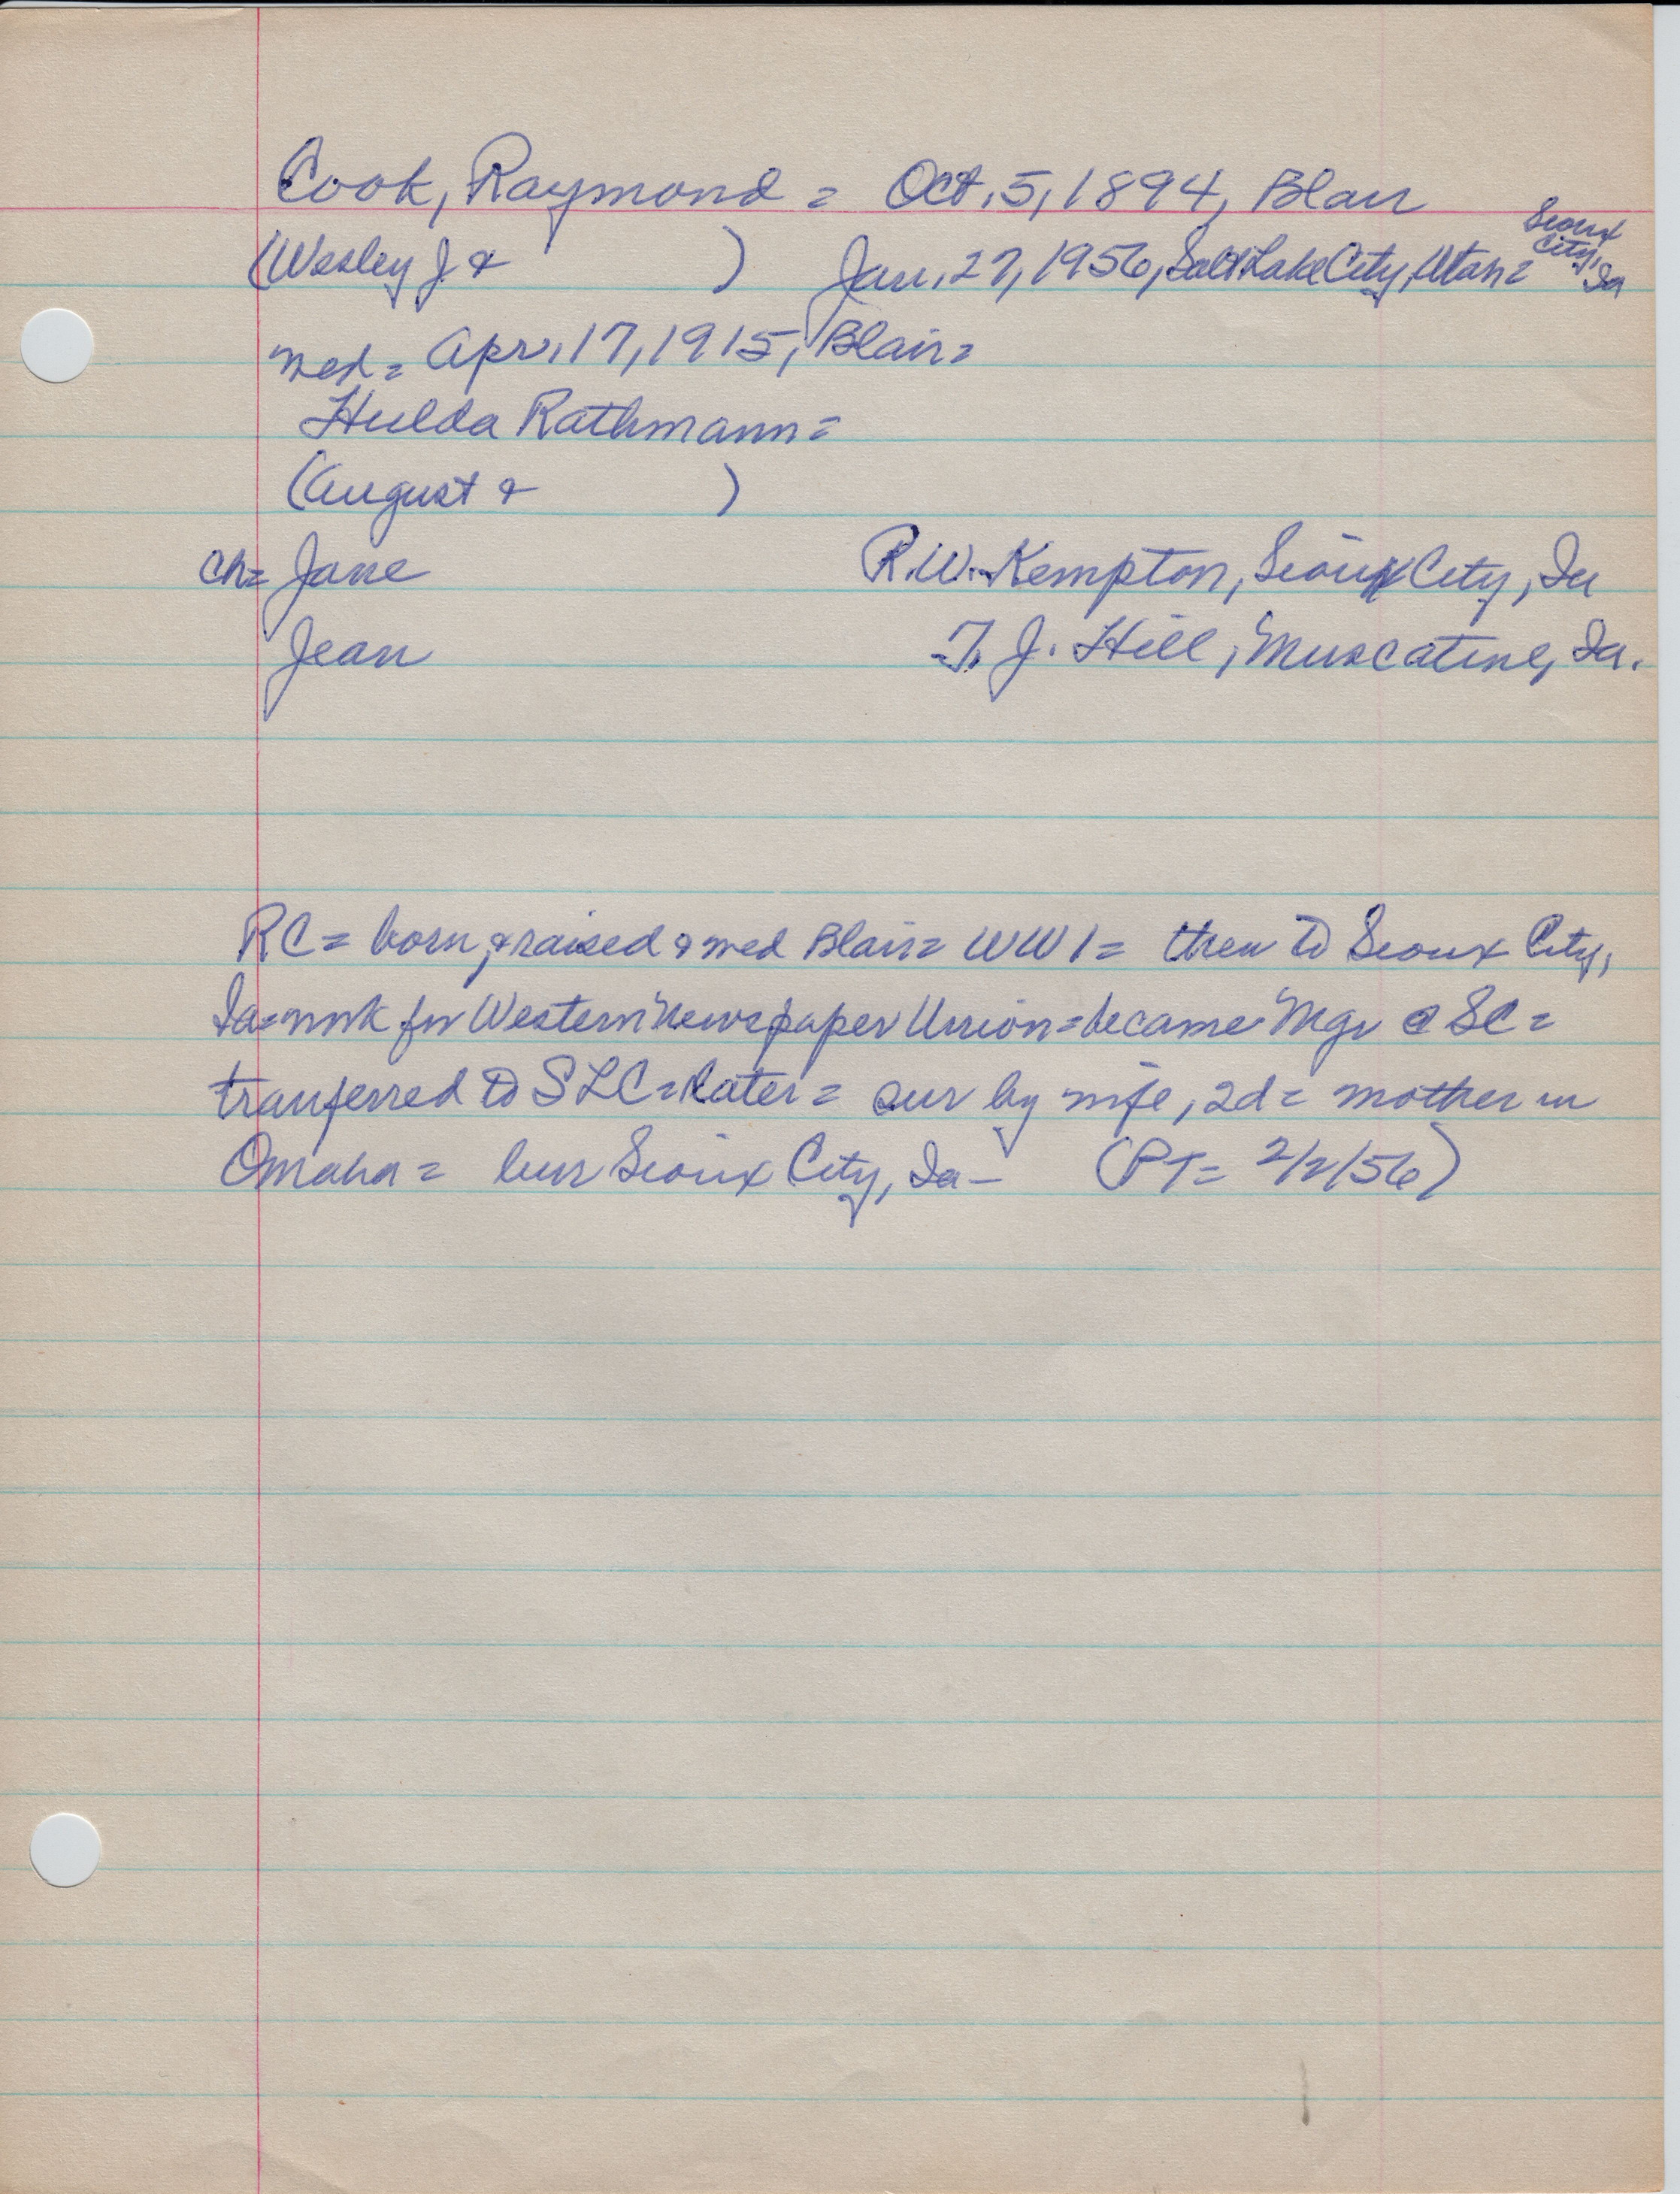 Cook, Raymond = Oct. 5, 1894, Blair
(Wesley J. & ) Jan. 27, 1956, Salt Lake City, Utah = Sioux City, Ia
med = Apr. 17, 1915, Blair =
Hulda Rathmann =
(August & )
ch = Jane R.W. Kempton, Sioux City, Ia
Jean T. J. Hill, Muscatine, Ia.
RC = born, & raised & med Blair = WW 1 = then to Sioux City,
Ia = work for Western Newspaper Union = became Mgr @ SC =
tranferred to SLC = later = sur by wife, 2d = mother in
Omaha = bur Sioux City, Ia - (PT = 2/2/56)